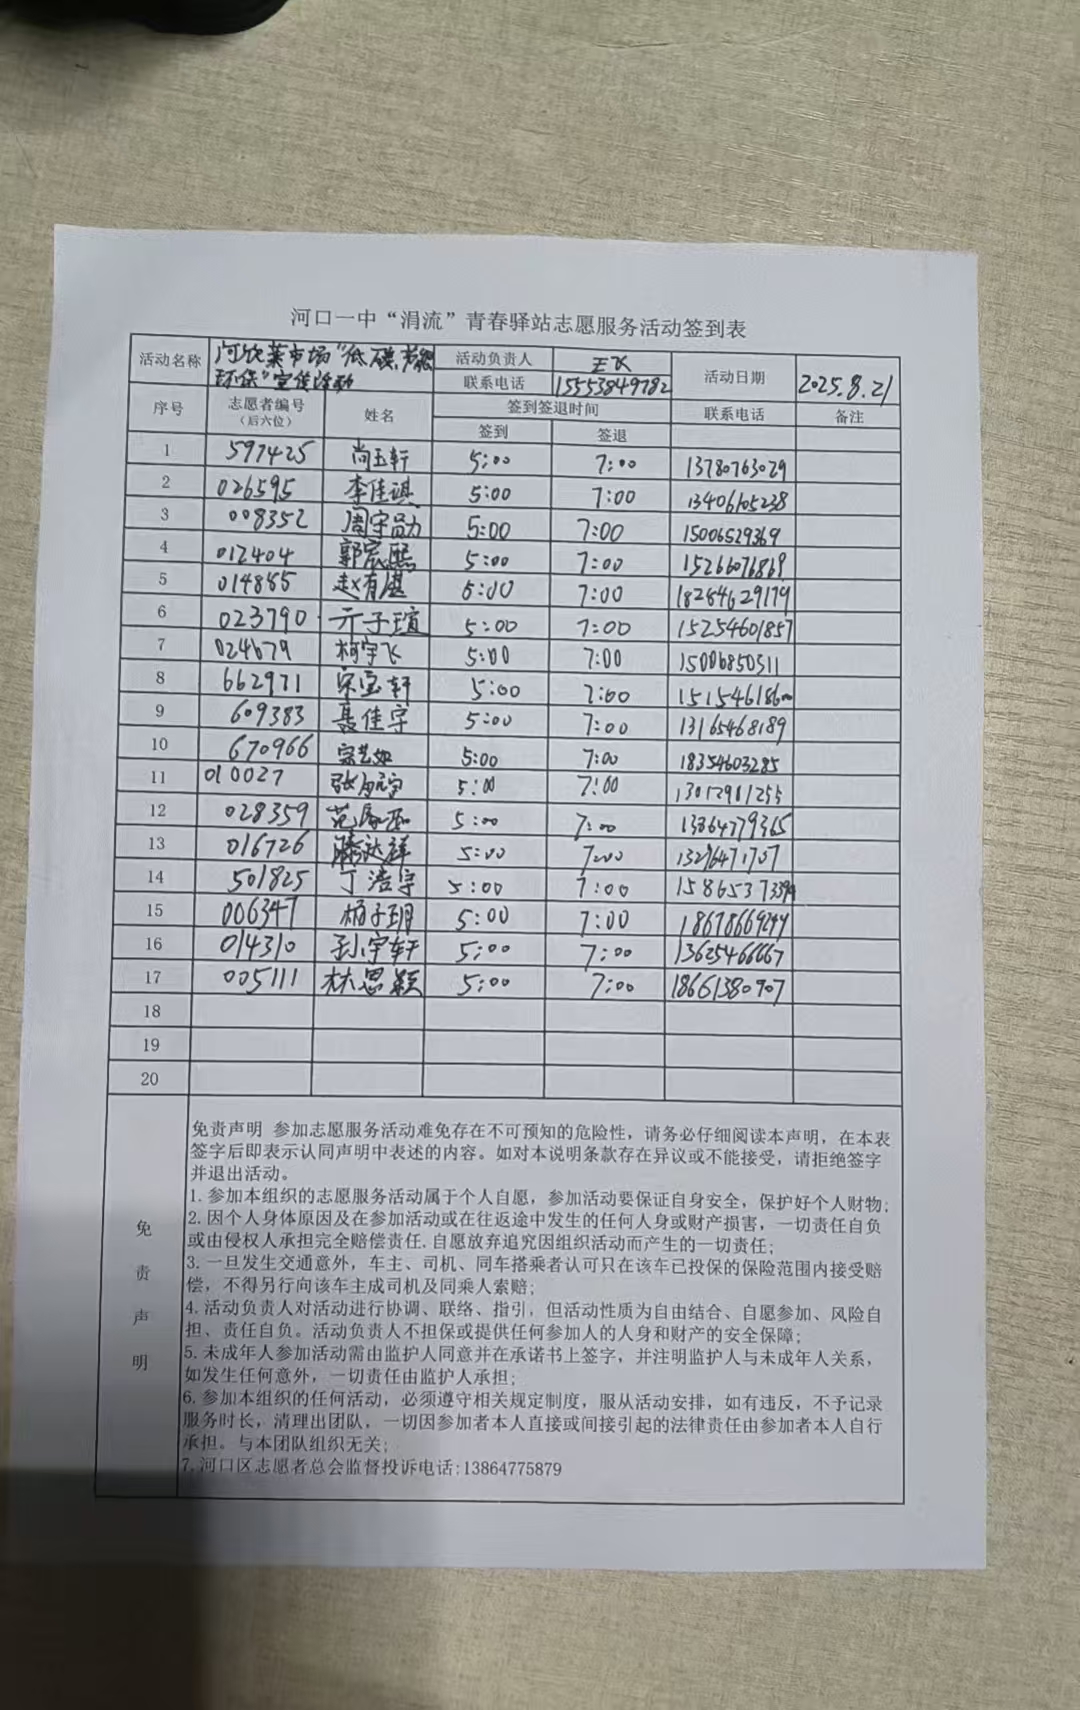 河口一中“涓流”青春驿站志愿服务活动签到表
活动名称 菜市场“低碳、节能 环保”宣传活动 活动负责人 王飞 活动日期 2025.8.21
联系电话 15553849782
序号 志愿者编号（后六位） 姓名 签到签退时间 联系电话 备注
签到 签退
1 597425 尚玉轩 5:00 7:00 13780763029
2 026595 李佳祺 5:00 7:00 13406105238
3 008352 周宇勋 5:00 7:00 15006529369
4 012404 郭宸熙 5:00 7:00 15266076869
5 014885 赵有湛 5:00 7:00 18284629179
6 023790 亓子瑄 5:00 7:00 15254601857
7 024679 柯宇飞 5:00 7:00 15006850311
8 662971 宋宝轩 5:00 7:00 15154618600
9 609383 聂佳宇 5:00 7:00 13165468189
10 670966 宗艺如 5:00 7:00 18354603285
11 010027 5:00 7:00
12 028359 5:00 7:00 13864779365
13 016726 滕达祥 5:00 7:00 13296471707
14 501825 丁浩宇 5:00 7:00
15 006347 杨子玥 5:00 7:00
16 014310 孙宇轩 5:00 7:00 13625466667
17 005111 林思颖 5:00 7:00 18661380907
18
19
20
免责声明
免责声明 参加志愿服务活动难免存在不可预知的危险性，请务必仔细阅读本声明，在本表
签字后即表示认同声明中表述的内容。如对本说明条款存在异议或不能接受，请拒绝签字
并退出活动。
1. 参加本组织的志愿服务活动属于个人自愿，参加活动要保证自身安全，保护好个人财物；
2. 因个人身体原因及在参加活动或在往返途中发生的任何人身或财产损害，一切责任自负
或由侵权人承担完全赔偿责任.自愿放弃追究因组织活动而产生的一切责任；
3. 一旦发生交通意外，车主、司机、同车搭乘者认可只在该车已投保的保险范围内接受赔
偿，不得另行向该车主成司机及同乘人索赔；
4. 活动负责人对活动进行协调、联络、指引，但活动性质为自由结合、自愿参加、风险自
担、责任自负。活动负责人不担保或提供任何参加人的人身和财产的安全保障；
5. 未成年人参加活动需由监护人同意并在承诺书上签字，并注明监护人与未成年人关系，
如发生任何意外，一切责任由监护人承担；
6. 参加本组织的任何活动，必须遵守相关规定制度，服从活动安排，如有违反，不予记录
服务时长，清理出团队，一切因参加者本人直接或间接引起的法律责任由参加者本人自行
承担。与本团队组织无关；
7. 河口区志愿者总会监督投诉电话:13864775879